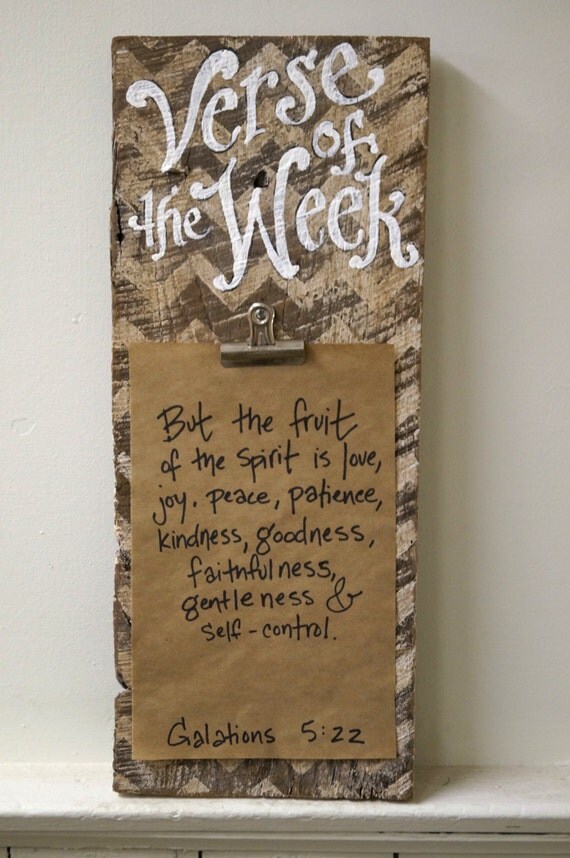 Verse
of
the Week
But the fruit
of the Spirit is love,
joy, peace, patience,
kindness, goodness,
faithfulness,
gentleness &
self-control.
Galations 5:22